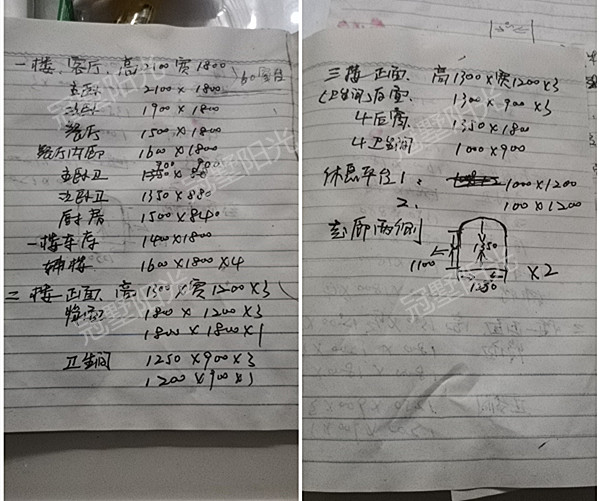 一楼、客厅 高2100宽1800
主卧 2100×1800
次卧 1900×1800
餐厅 1500×1800
餐厅内廊 1600×1800
主卧卫
次卧卫 1350×880
厨房 1500×840
一楼车库 1400×1800
辅楼 1600×1800×4
二楼 正面、高1300×宽1200×3
背面 1800×1200×3
1800×1800×1
卫生间 1250×900×3
1200×900×1
三楼 正面、高1300×宽1200×3
(卫生间)后面 1300×900×3
4后窗 1350×1800
4卫生间 1000×900
休息平台1: 1000×1200
2、 100×1200
走廊两侧
1350
1100
1250
×2
冠墅阳光
冠墅阳光
冠墅阳光
冠墅阳光
冠墅阳光